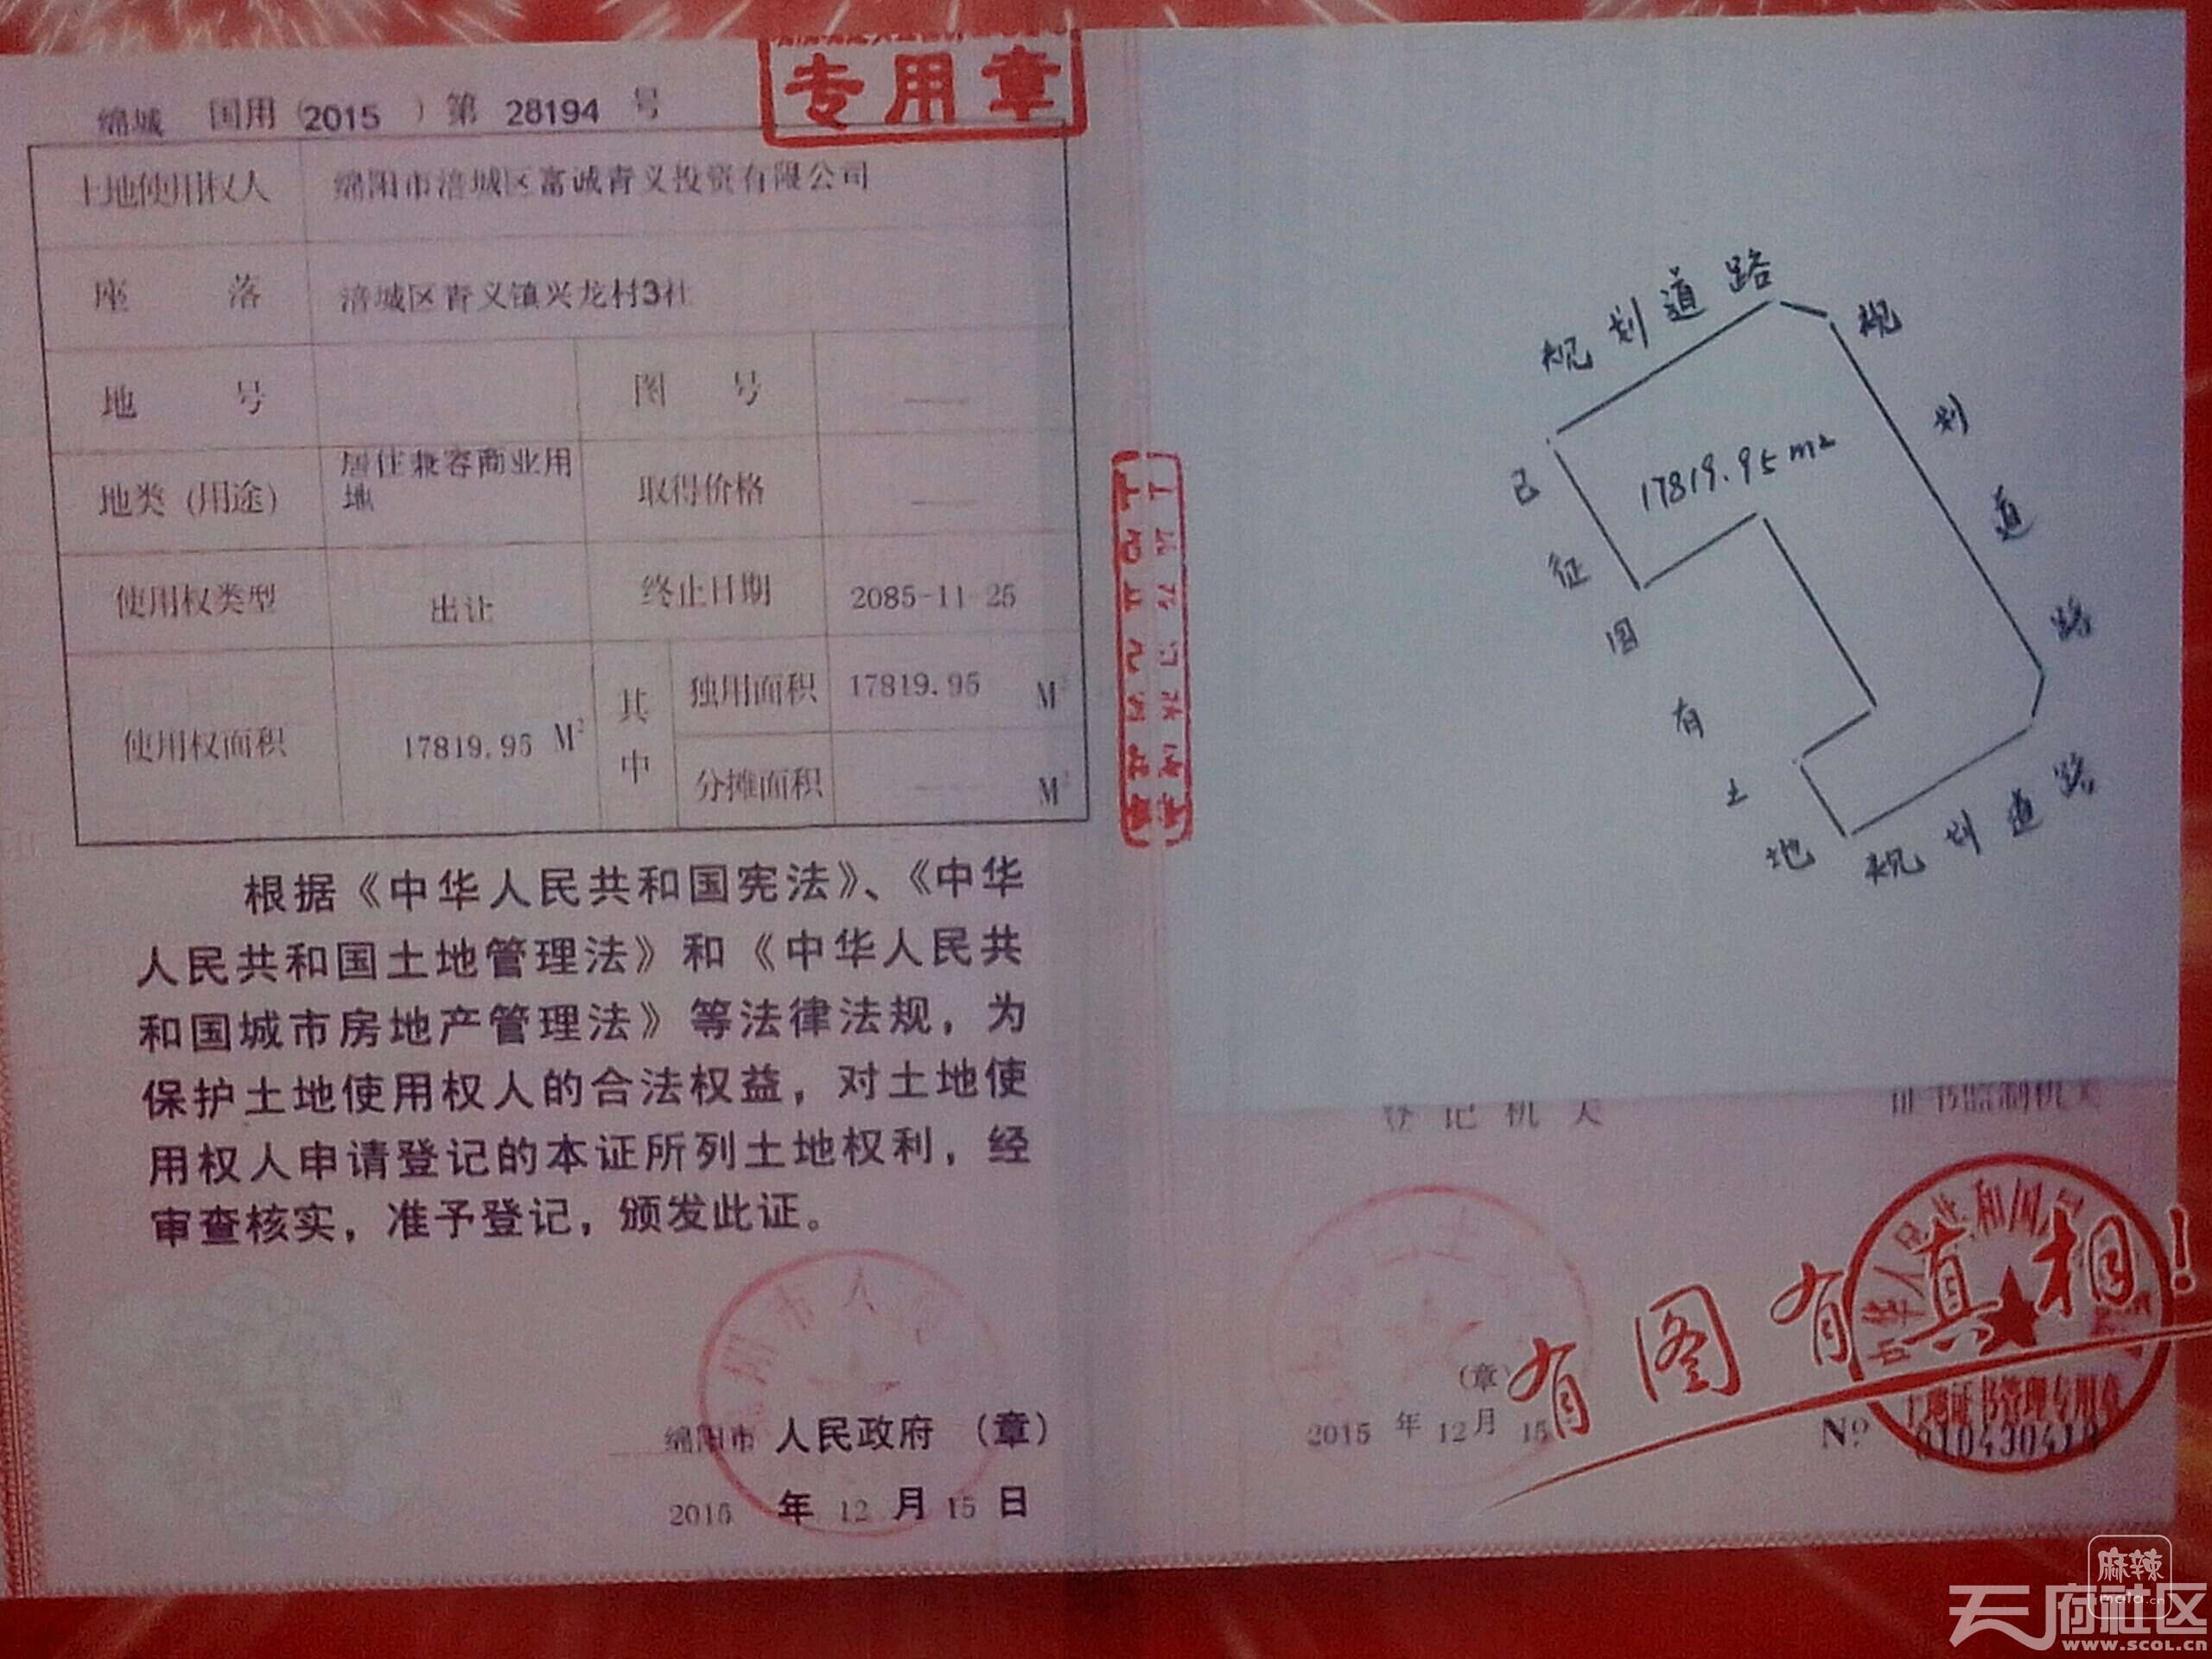 专用章
绵城 国用(2015 )第 28194 号
土地使用权人 绵阳市涪城区富诚青义投资有限公司
座 落 涪城区青义镇兴龙村3社
地 号 图 号 ——
地类(用途) 居住兼容商业用地 取得价格 ——
使用权类型 出让 终止日期 2085-11-25
使用权面积 17819.95 M² 其中 独用面积 17819.95 M²
分摊面积 —— M²
根据《中华人民共和国宪法》、《中华
人民共和国土地管理法》和《中华人民共
和国城市房地产管理法》等法律法规，为
保护土地使用权人的合法权益，对土地使
用权人申请登记的本证所列土地权利，经
审查核实，准予登记，颁发此证。
绵阳市 人民政府 （章）
2015 年 12 月 15 日
规划道路
规划道路
17819.95m²
已征国有土地
规划道路
登记机关
证书监制机关
(章)
2015 年 12 月 15
土地证书管理专用章
有图有真相!
Nº 010430410
麻辣
imala.cn
天府社区
www.scol.cn